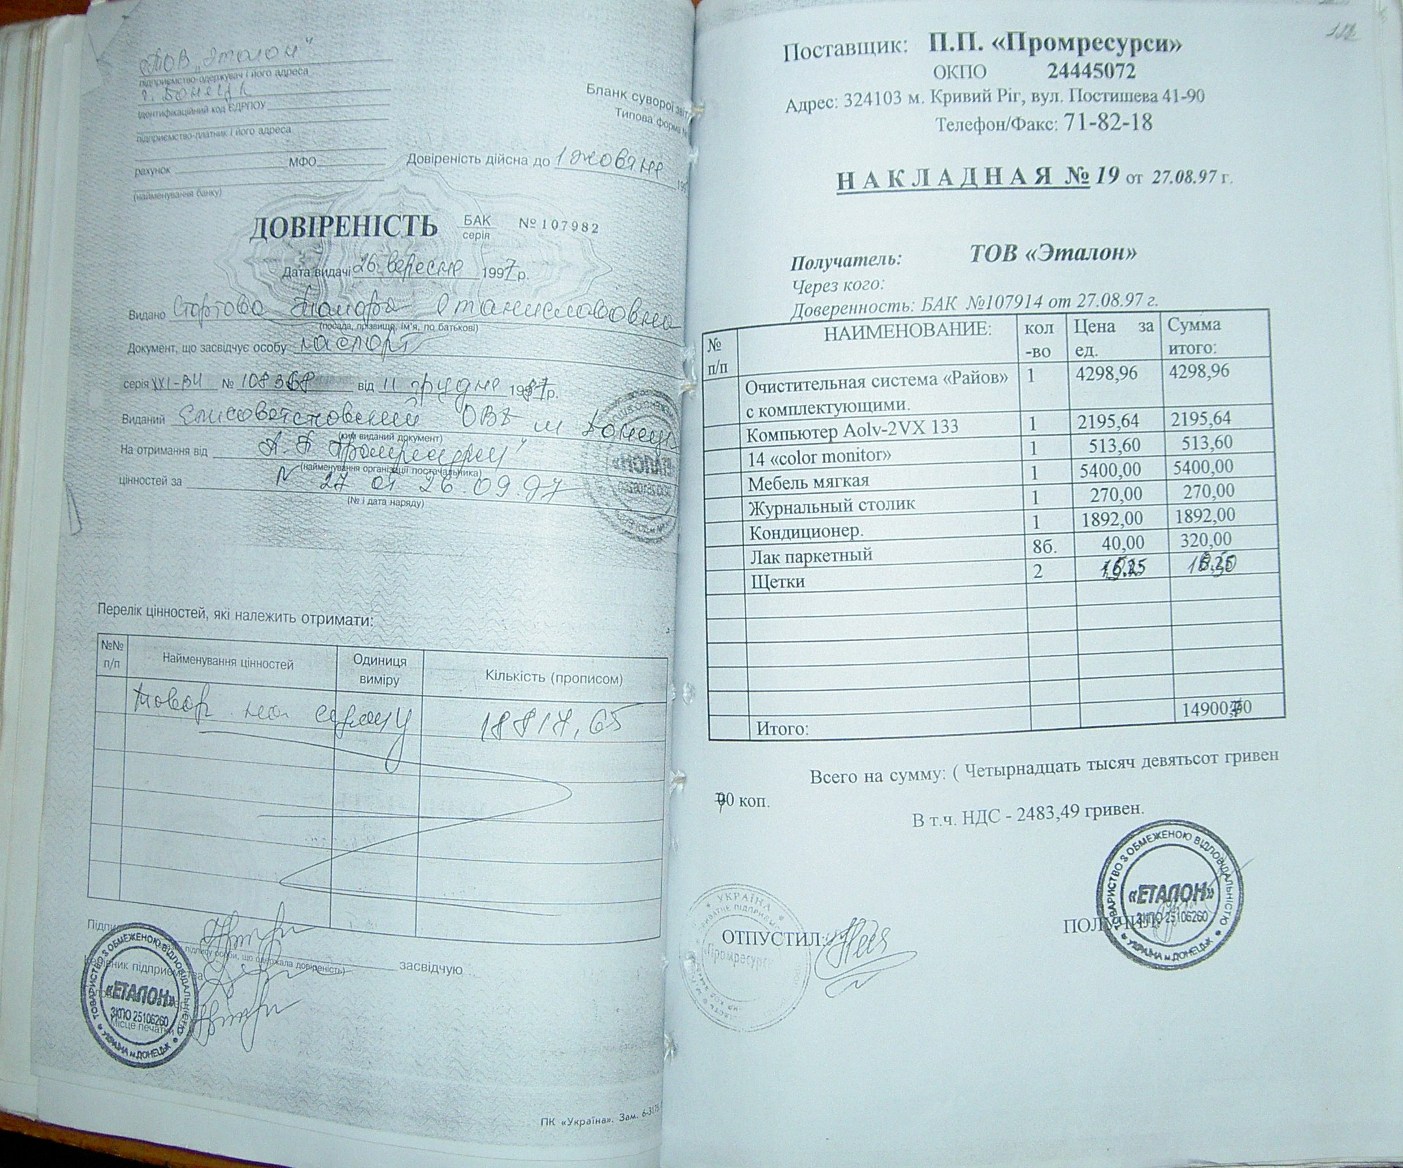 ТОВ „Эталон"
підприємство-одержувач і його адреса
г. Донецк
ідентифікаційний код ЄДРПОУ
підприємство-платник і його адреса
рахунок МФО
(найменування банку)
Бланк суворої
Типова форма
Довіреність дійсна до 1 жовтня 199
ДОВІРЕНІСТЬ БАК № 107982
серія
Дата видачі 26 вересня 1997 р.
Видано Станиславовна
(посада, прізвище, ім'я, по батькові)
Документ, що засвідчує особу паспорт
серія № від 11 грудня 19 р.
Виданий ОВД
(ким виданий документ)
На отримання від
(найменування організації постачальника)
цінностей за N 27 от 26.09.97
(№ і дата наряду)
«ЕТАЛОН»
Перелік цінностей, які належить отримати:
№№ п/п Найменування цінностей Одиниця виміру Кількість (прописом)
Товар на сумму 18818,65
Підпис
підпису особи, що одержала довіреність) засвідчую
Керівник підприємства
Місце печатки
ТОВАРИСТВО З ОБМЕЖЕНОЮ ВІДПОВІДАЛЬНІСТЮ
«ЕТАЛОН»
ЗКПО 25106260
УКРАЇНА м.ДОНЕЦЬК
ПК «Україна». Зам.
Поставщик: П.П. «Промресурси»
ОКПО 24445072
Адрес: 324103 м. Кривий Ріг, вул. Постишева 41-90
Телефон/Факс: 71-82-18
НАКЛАДНАЯ № 19 от 27.08.97 г.
Получатель: ТОВ «Эталон»
Через кого:
Доверенность: БАК №107914 от 27.08.97 г.
№ п/п НАИМЕНОВАНИЕ: кол-во Цена за ед. Сумма итого:
Очистительная система «Райов» 1 4298,96 4298,96
с комплектующими.
Компьютер Aolv-2VX 133 1 2195,64 2195,64
14 «color monitor» 1 513,60 513,60
Мебель мягкая 1 5400,00 5400,00
Журнальный столик 1 270,00 270,00
Кондиционер. 1 1892,00 1892,00
Лак паркетный 8б. 40,00 320,00
Щетки 2
Итого: 14900,
Всего на сумму: ( Четырнадцать тысяч девятьсот гривен
коп.
В т.ч. НДС - 2483,49 гривен.
ОТПУСТИЛ:
УКРАЇНА
Промресурси
ПОЛУЧИЛ
ТОВАРИСТВО З ОБМЕЖЕНОЮ ВІДПОВІДАЛЬНІСТЮ
«ЕТАЛОН»
ЗКПО 25106260
УКРАЇНА м.ДОНЕЦЬК